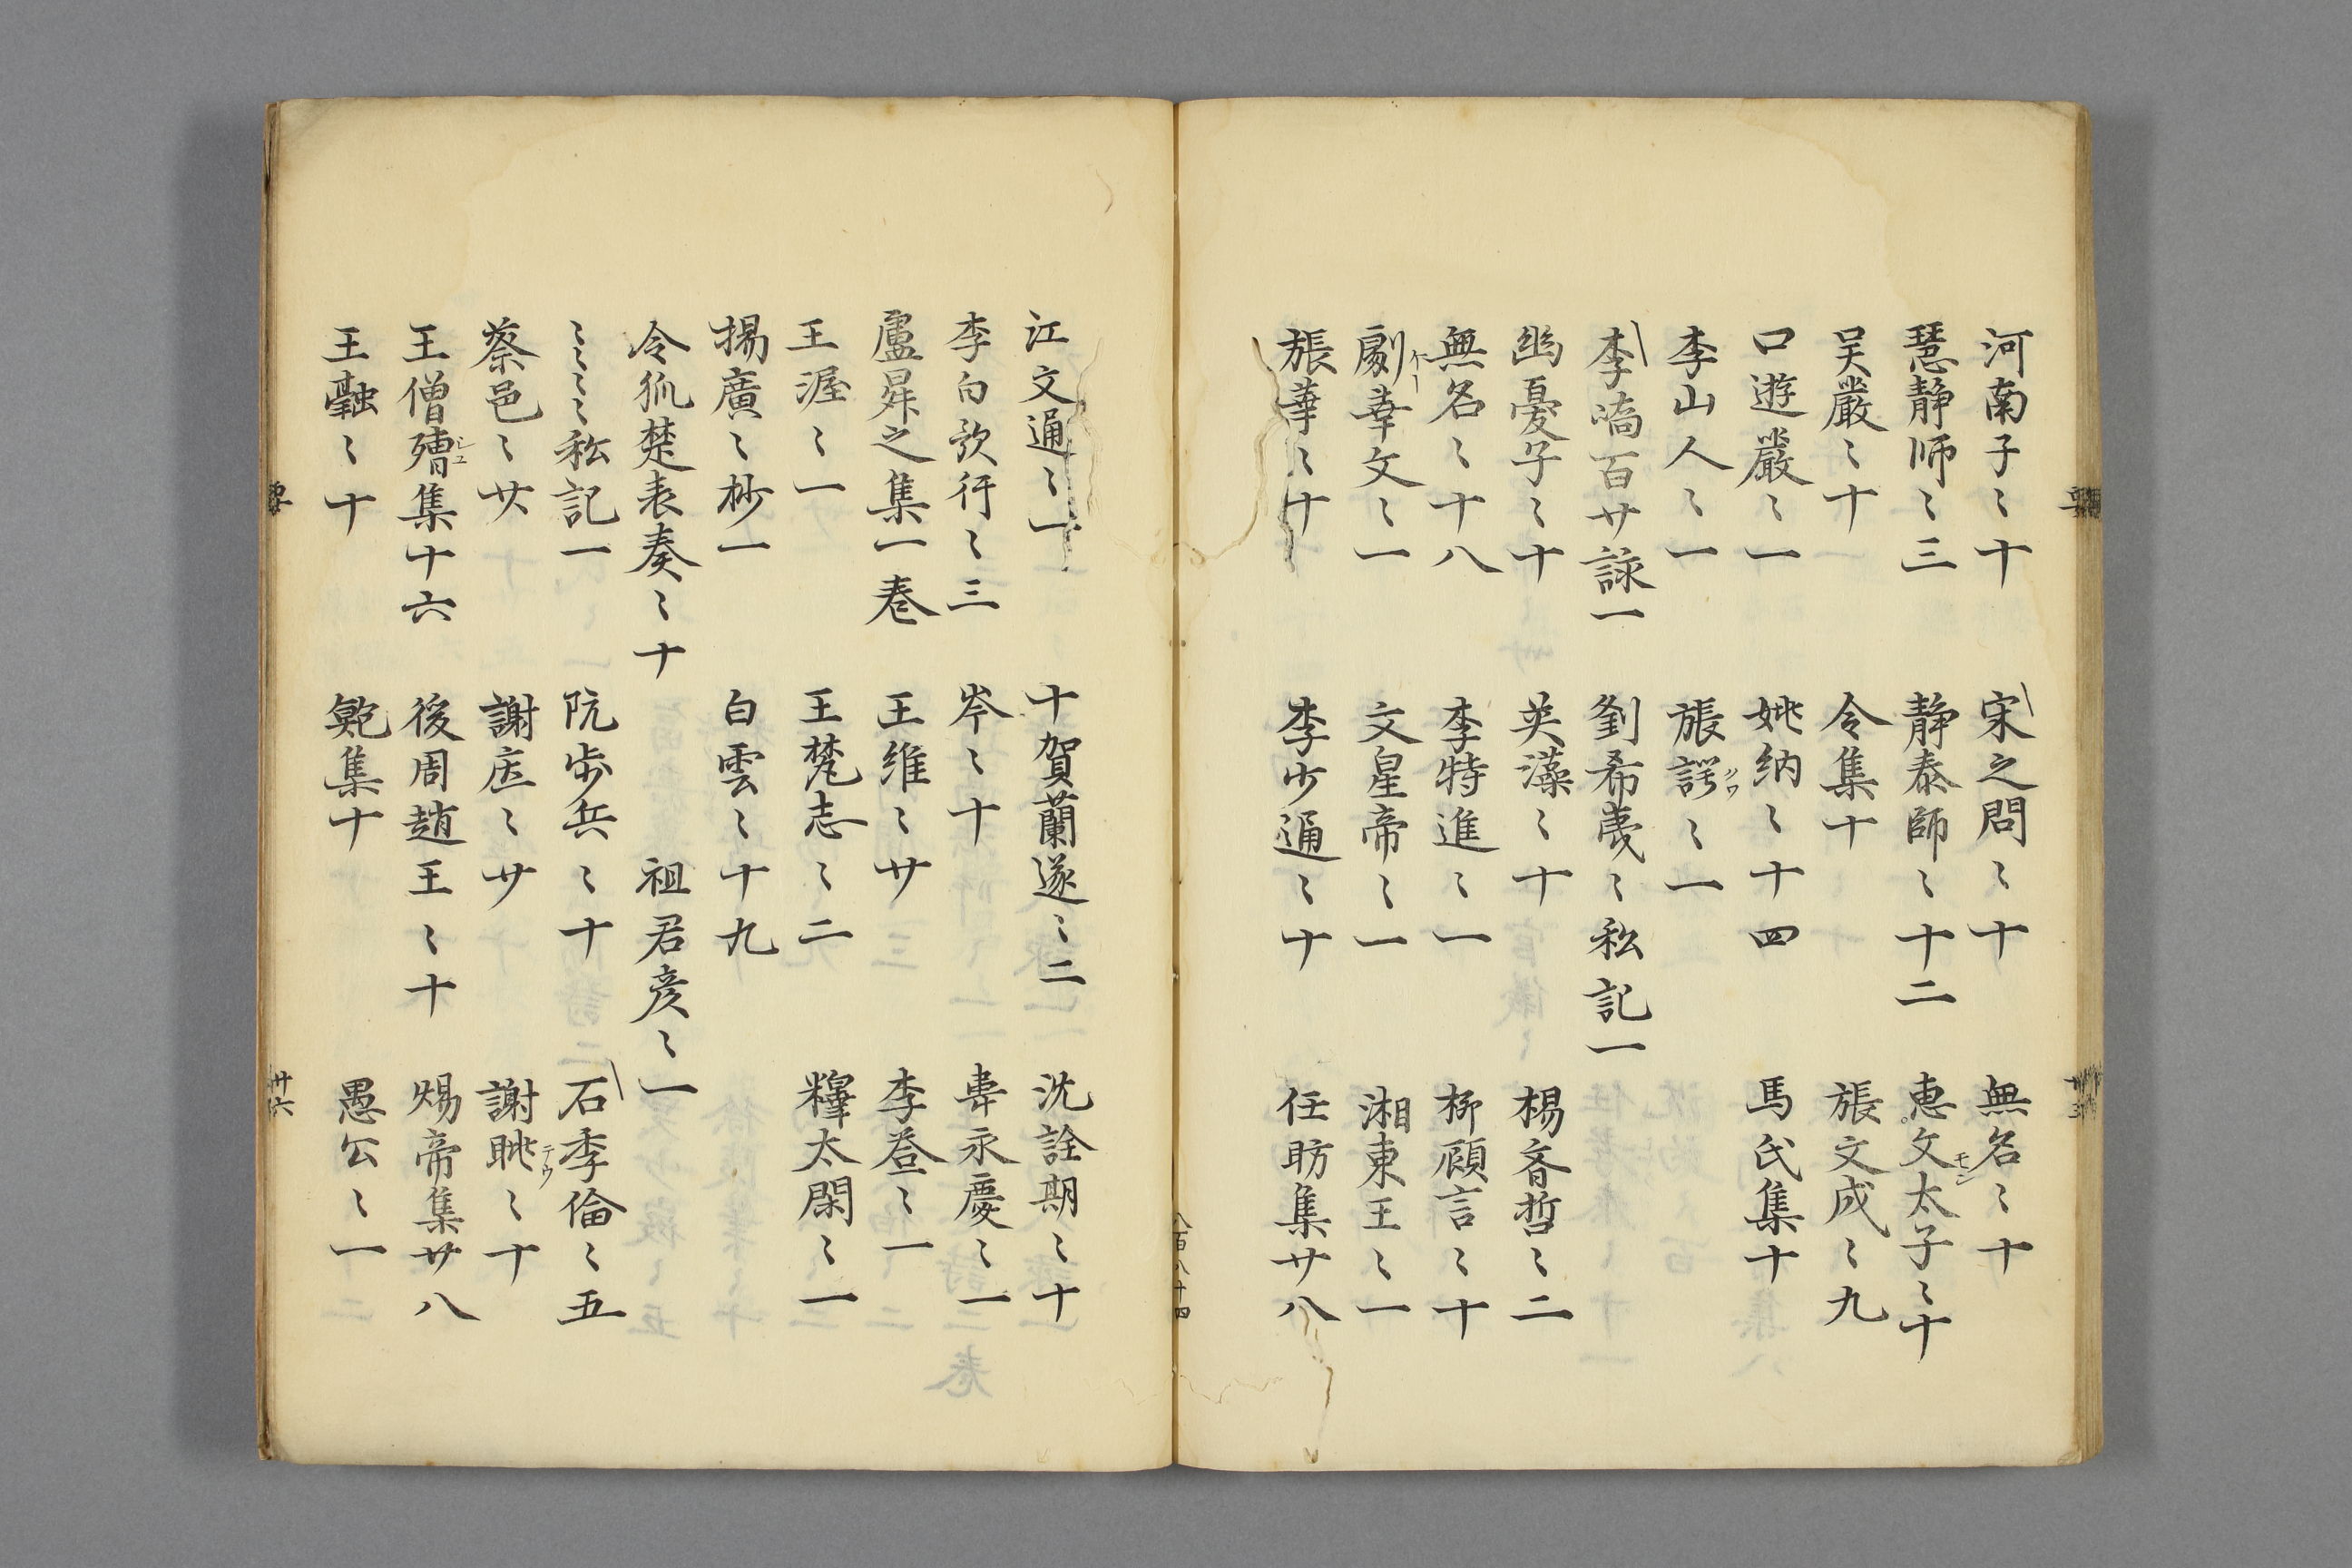 河南子〻十　宋之問〻十　無名〻十
慧静师〻三　静泰師〻十二　恵文太子〻十
吴嚴〻十　令集十　張文成〻九
口遊嚴〻一　姚納〻十四　馬氏集十
李山人〻一　張諤〻一
李嶠百廿詠一　劉希夷〻私記一
幽憂子〻十　英藻〻十　楊齊哲〻二
無名〻十八　李特進〻一　柳顧言〻十
劇幸文〻一　文皇帝〻一　湘東王〻一
張華〻十　李少通〻十　任昉集廿八
江文通〻一　十賀蘭遂〻二　沈詮期〻十
李白歌行〻三　岑〻十　韋永慶〻一
盧昇之集一巻　王維〻廿　李登〻一
王渥〻一　王梵志〻二　太閑〻一
揚廣〻抄一　白雲〻十九
令狐楚表奏〻十　祖君彦〻一
〻〻〻〻私記一　阮歩兵〻十　石季倫〻五
蔡邕〻廿　謝〻廿　謝眺〻十
王僧集十六　後周趙王〻十　煬帝集廿八
王融〻十　鮑集十　愚公〻一
八百八十四
廿六